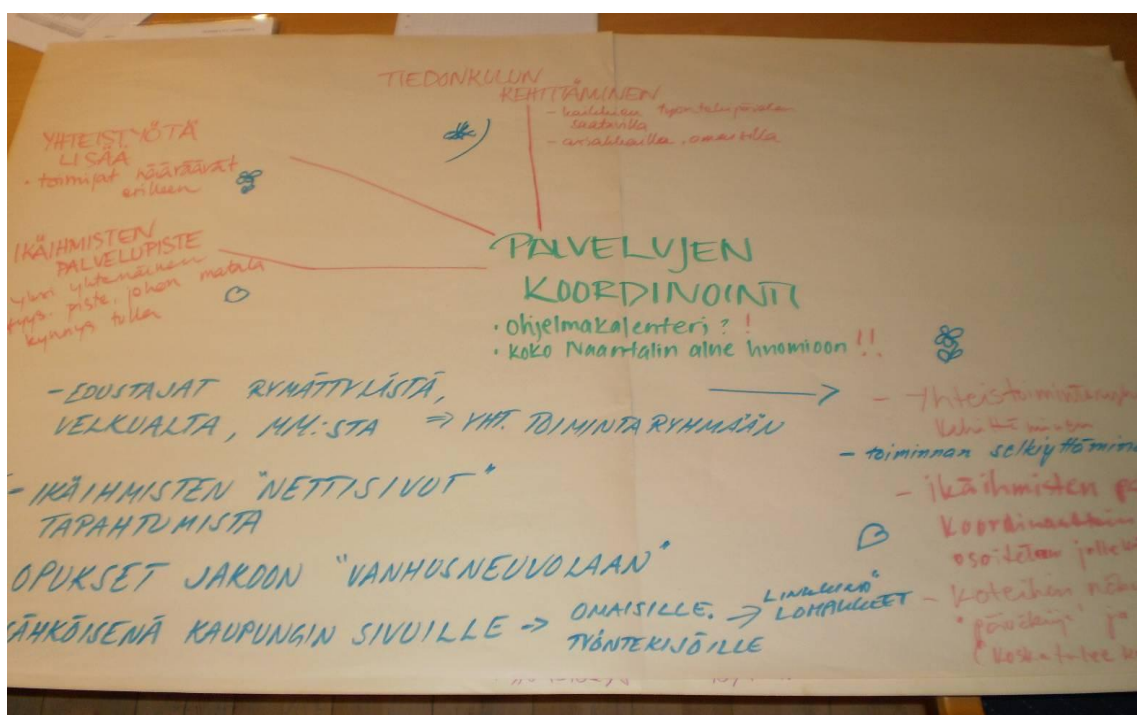 TIEDONKULUN
KEHITTÄMINEN
- kaikkien
saatavilla
- asiakkailla, omaisilla
YHTEISTYÖTÄ
LISÄÄ
• toimijat hääräävät
erikseen
IKÄIHMISTEN
PALVELUPISTE
yksi yhtenäinen
piste, johon matala
kynnys tulla
PALVELUJEN
KOORDINOINTI
• Ohjelmakalenteri ? !
• koko Naantalin alue huomioon !!
- EDUSTAJAT RYMÄTTYLÄSTÄ,
VELKUALTA, MM:STA => YHT. TOIMINTARYHMÄÄN
- IKÄIHMISTEN "NETTISIVUT"
TAPAHTUMISTA
OPUKSET JAKOON "VANHUSNEUVOLAAN"
ÄHKÖISENÄ KAUPUNGIN SIVUILLE -> OMAISILLE. ->
TYÖNTEKIJÖILLE
LOMAKKEET
-
- toiminnan selkiyttämine
- ikäihmisten pa
koordinaattorin
osoitetaan
- koteihin
"päiväkirja" ja